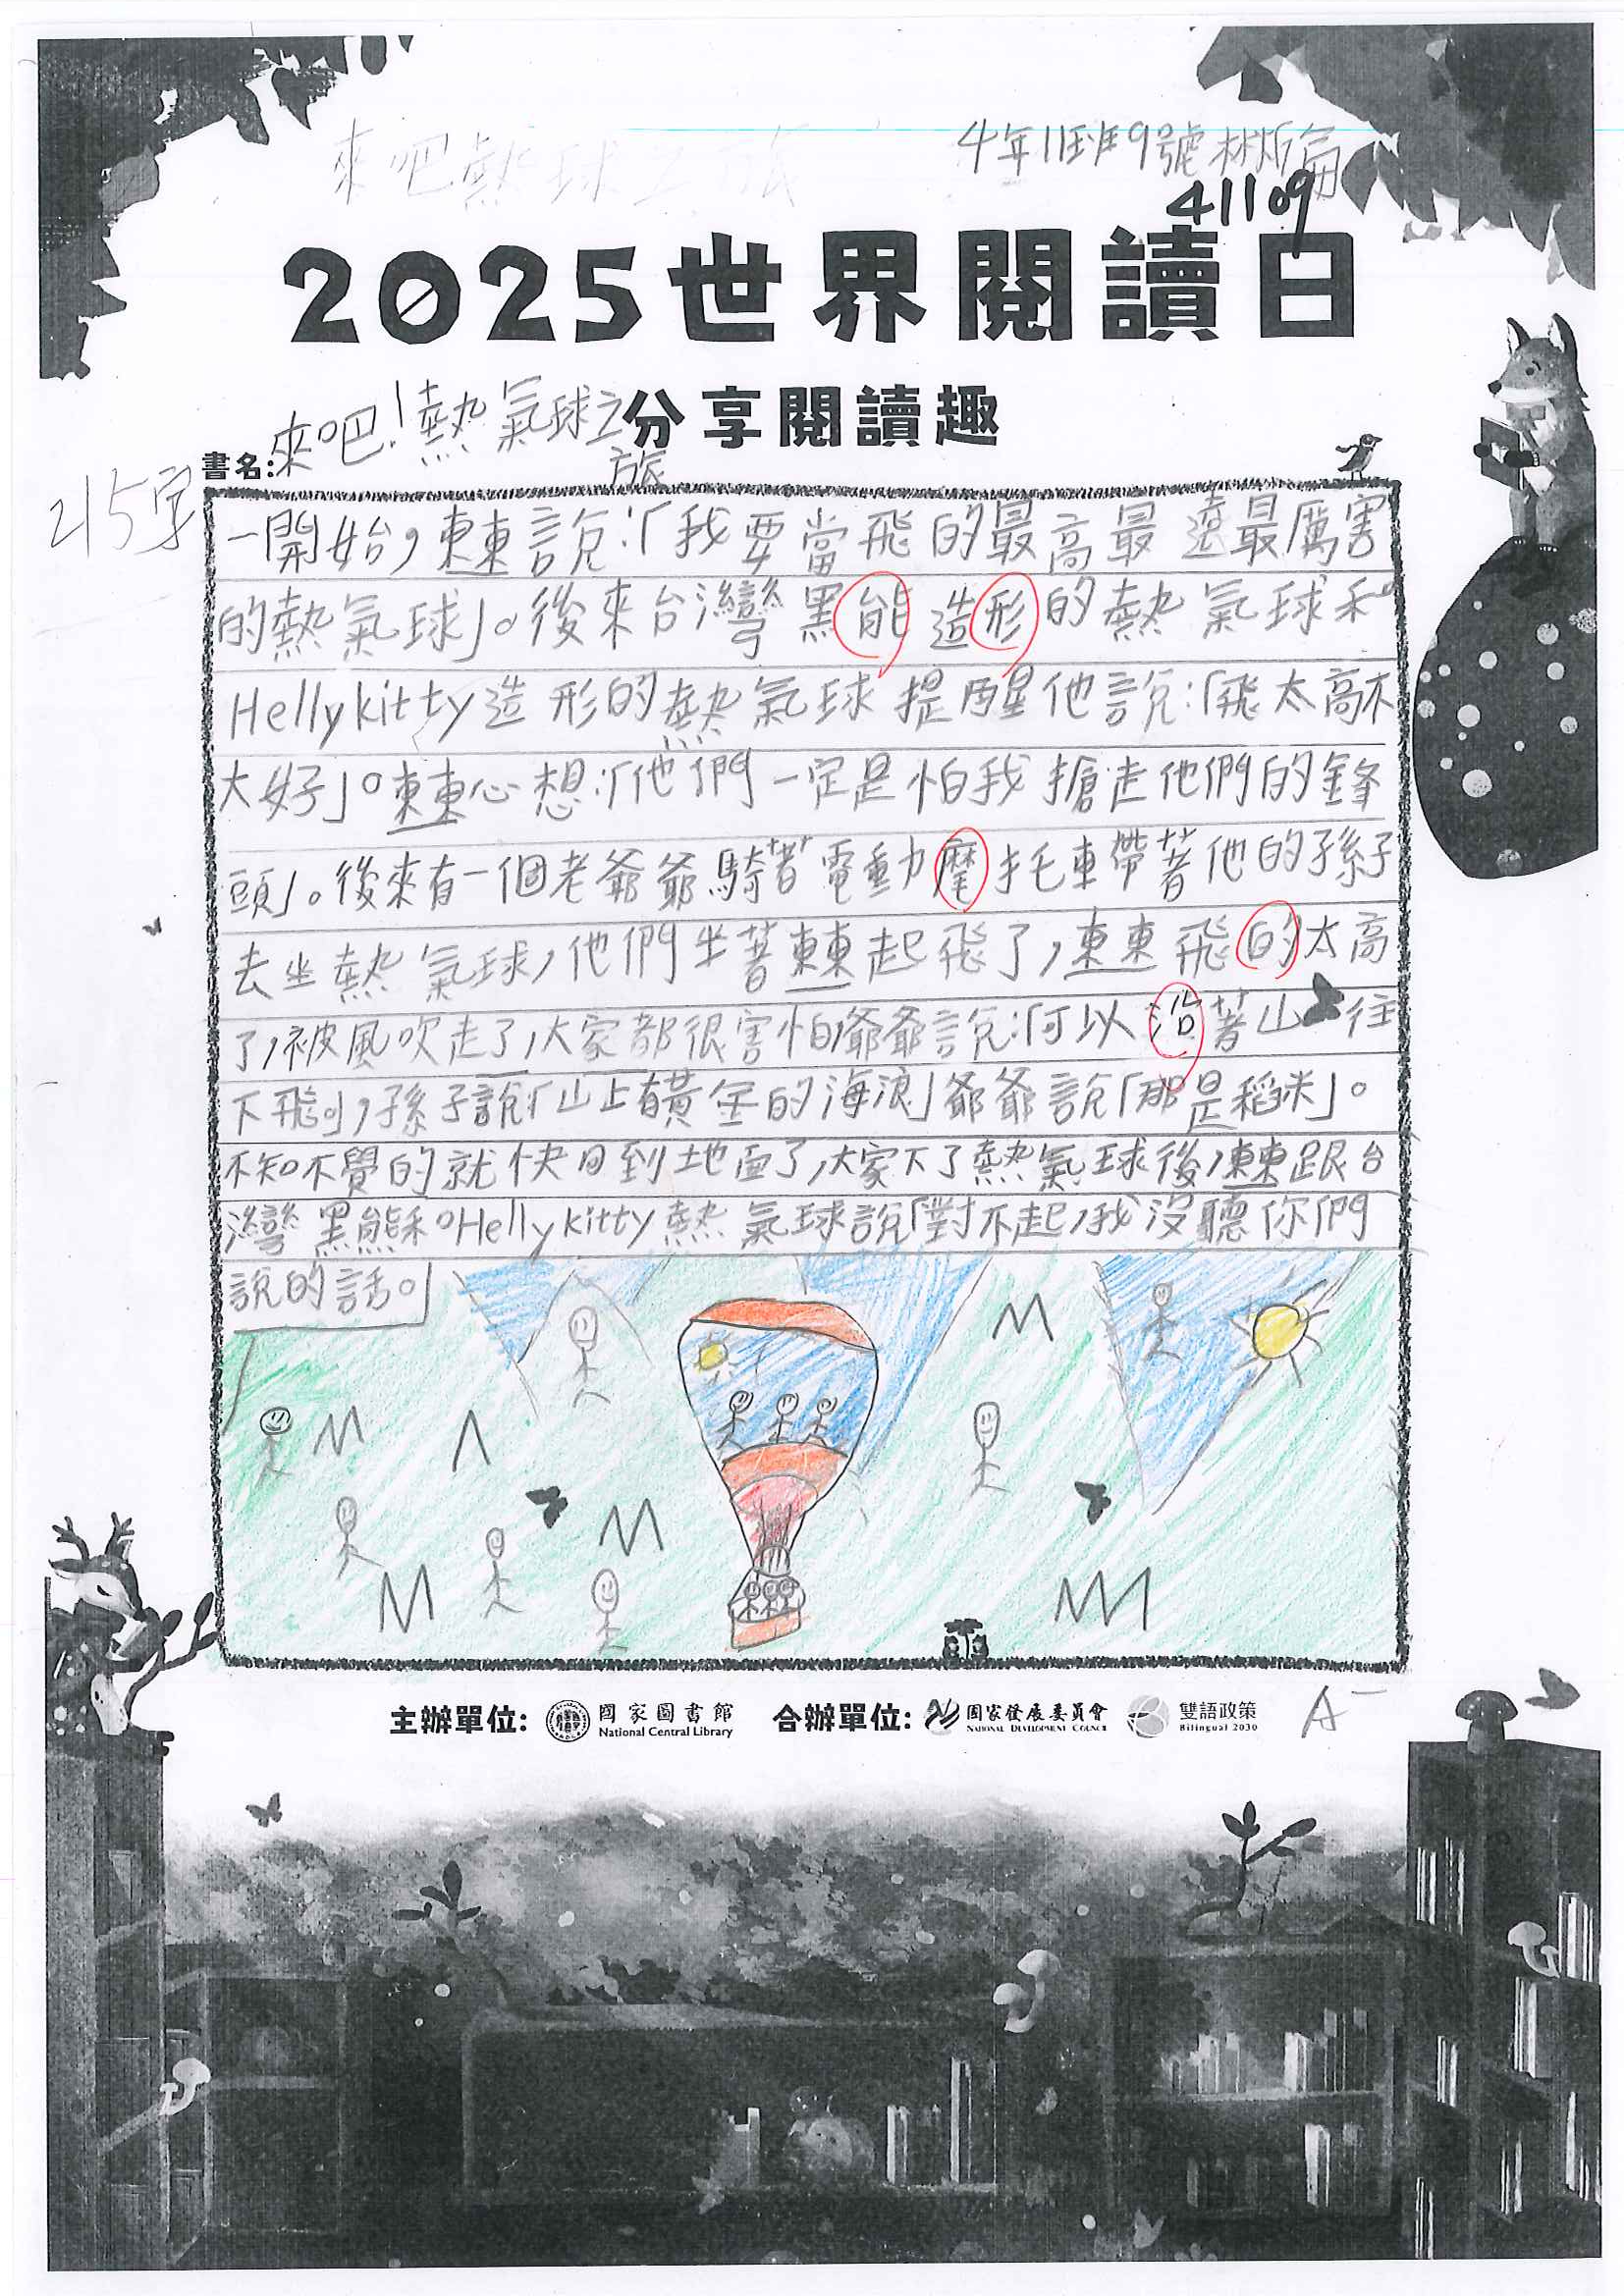 來吧熱球之旅
4年11班9號林炘侖
41109
2025世界閱讀日
分享閱讀趣
書名:來吧!熱氣球之旅
215字
一開始,東東說:「我要當飛的最高最遠最厲害
的熱氣球」。後來台灣黑能造形的熱氣球和
Hellykitty造形的熱氣球提醒他說:「飛太高不
大好」。東東心想:「他們一定是怕我搶走他們的鋒
頭」。後來有一個老爺爺騎著電動摩托車帶著他的孫子
去坐熱氣球,他們坐著東東起飛了,東東飛的太高
了,被風吹走了,大家都很害怕,爺爺說:「可以沿著山往
下飛」,孫子說「山上有黃金的海浪」爺爺說「那是稻米」。
不知不覺的就快回到地面了,大家下了熱氣球後,東東跟台
灣黑熊和Hellykitty熱氣球說「對不起,我沒聽你們
說的話。」
主辦單位: 國家圖書館 National Central Library 合辦單位: 國家發展委員會 NATIONAL DEVELOPMENT COUNCIL 雙語政策 Bilingual 2030
A-